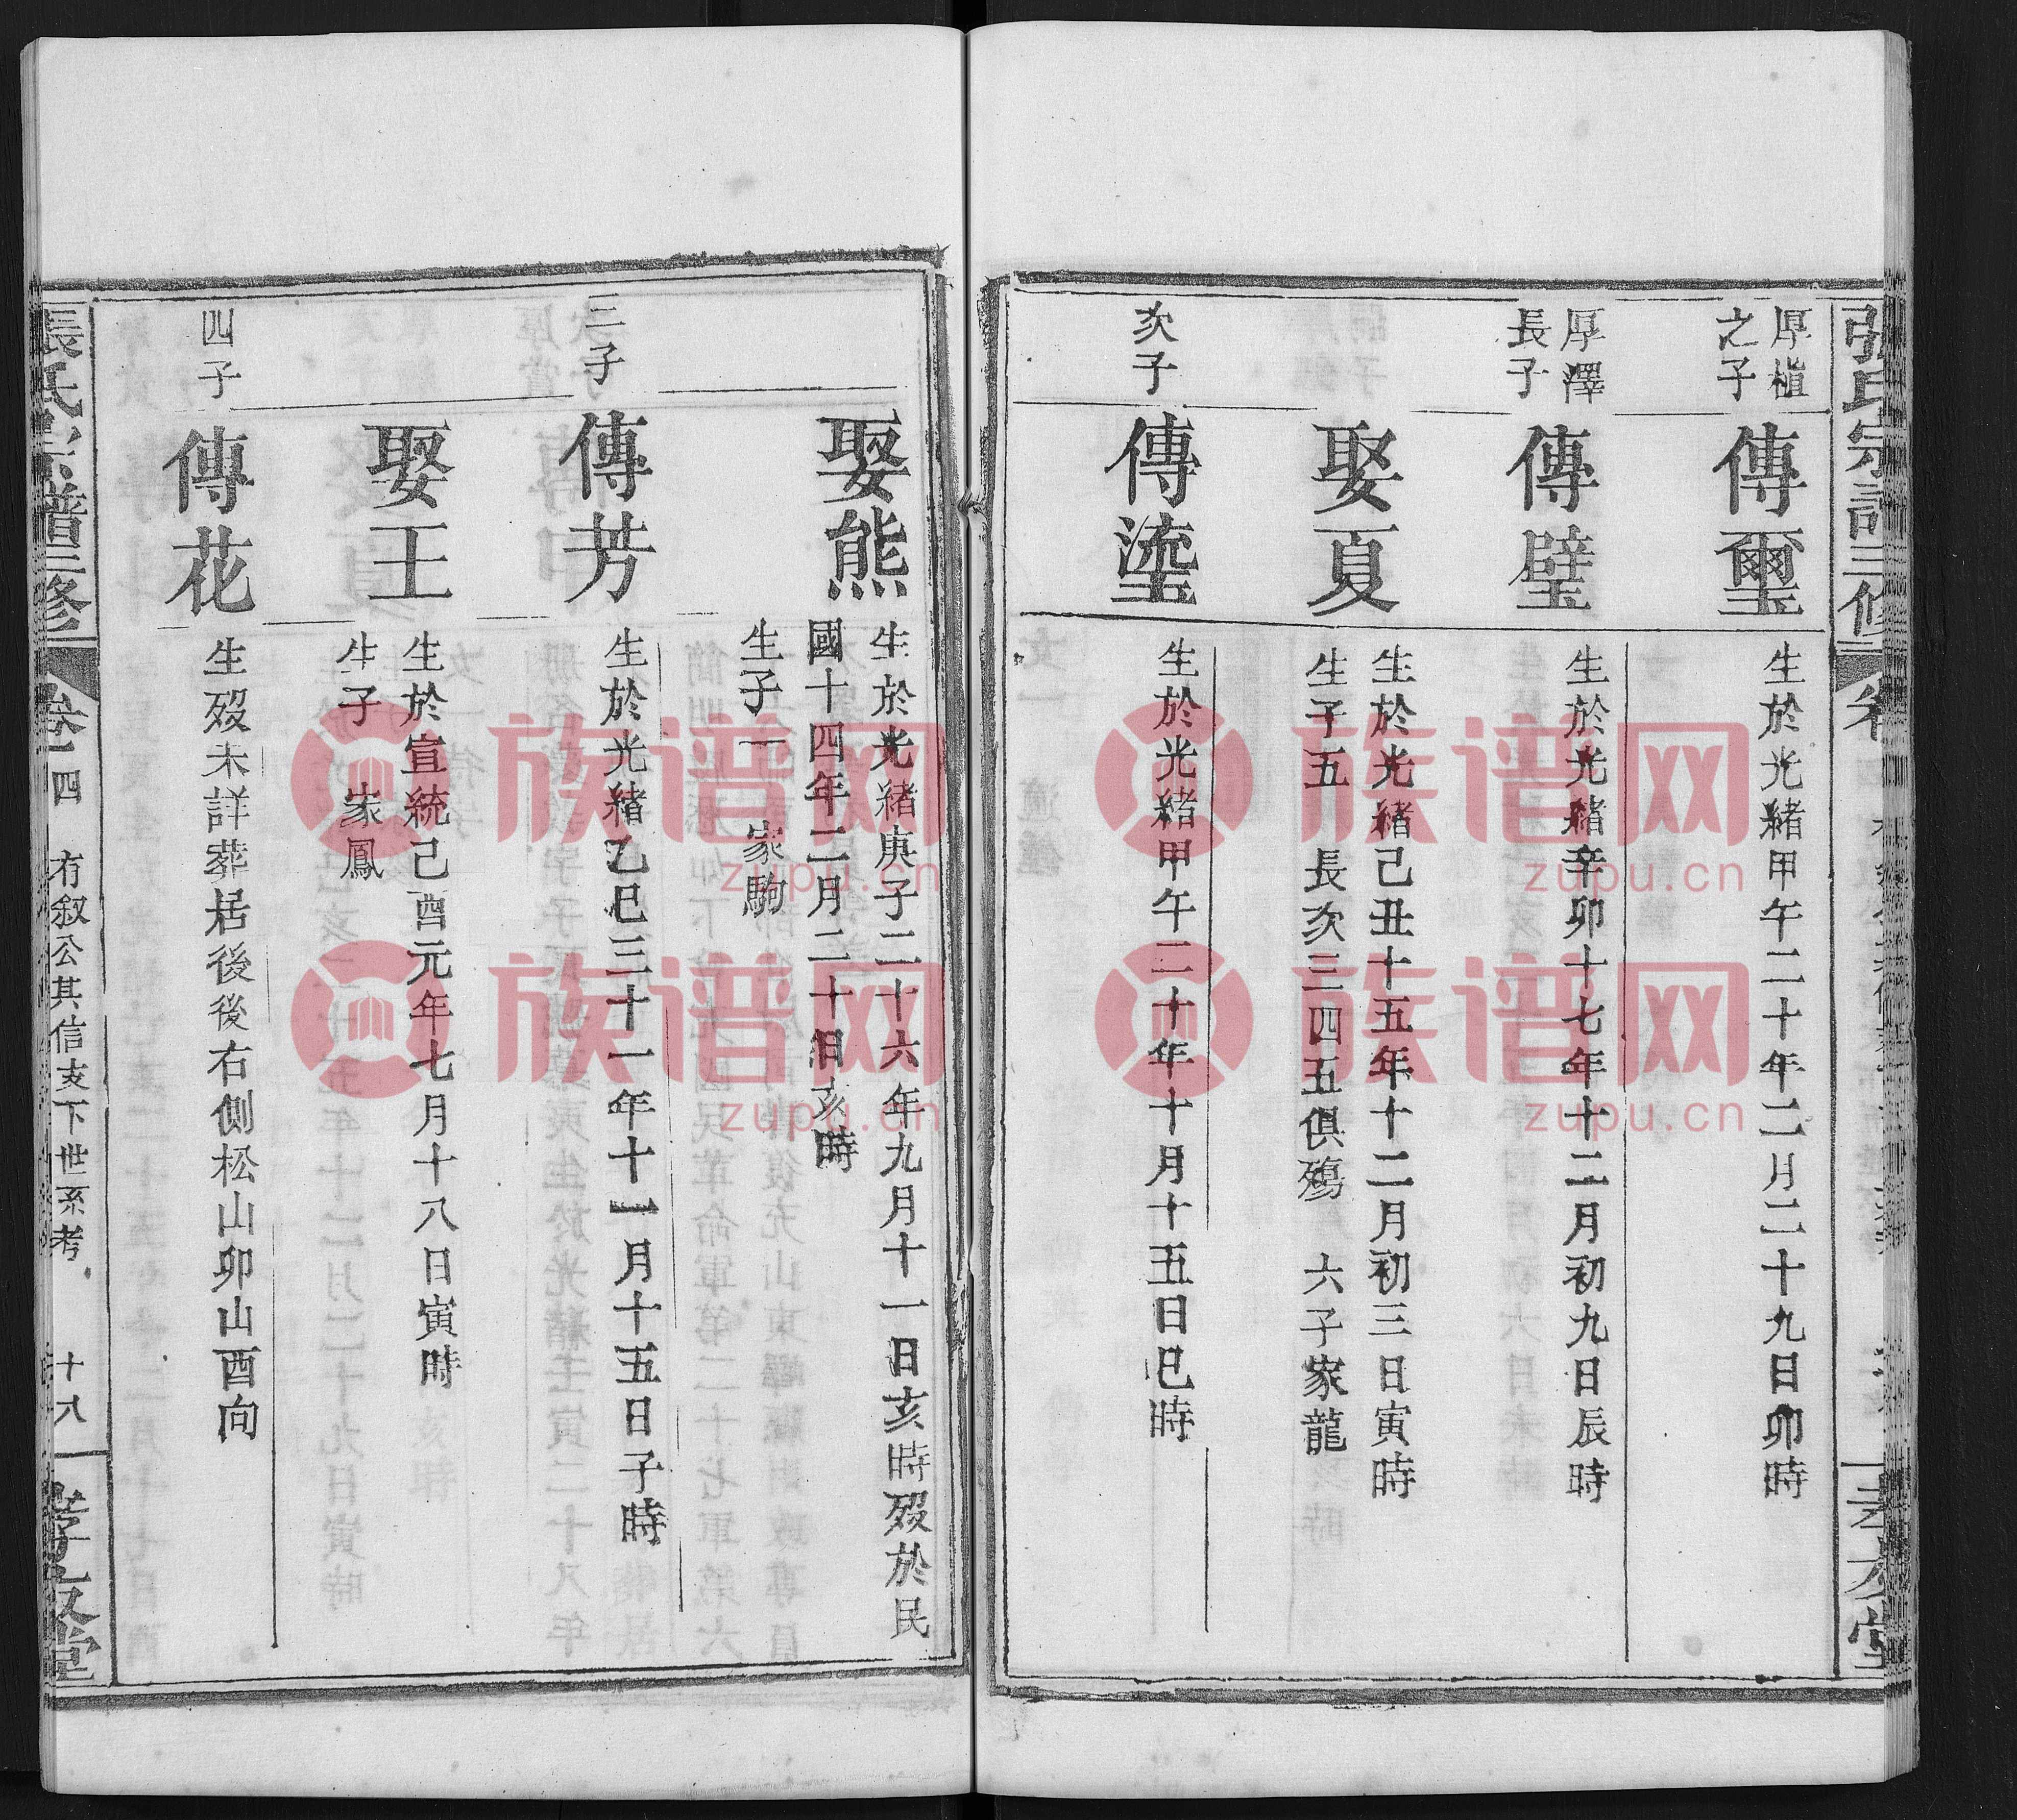 厚槙
之子
傳璽
生於光緒甲午二十年二月二十九日卯時
厚澤
長子
傳璧
生於光緒辛卯十七年十二月初九日辰時
娶夏
生於光緒己丑十五年十二月初三日寅時
生子五 長次三四五俱殤 六子家龍
次子
傳
生於光緒甲午二十年十月十五日巳時
娶熊
生於光緒庚子二十六年九月十一日亥時歿於民
國十四年二月二十日亥時
生子一 家駒
三子
傳芳
生於光緒乙巳三十一年十一月十五日子時
娶王
生於宣統己酉元年七月十八日寅時
生子 家鳳
四子
傳花
生歿未詳葬居後後右側松山卯山酉向
張氏宗譜三修
卷四 有叙公其信支下世系考 十八
孝友堂
族谱网
zupu.cn
族谱网
zupu.cn
族谱网
zupu.cn
族谱网
zupu.cn